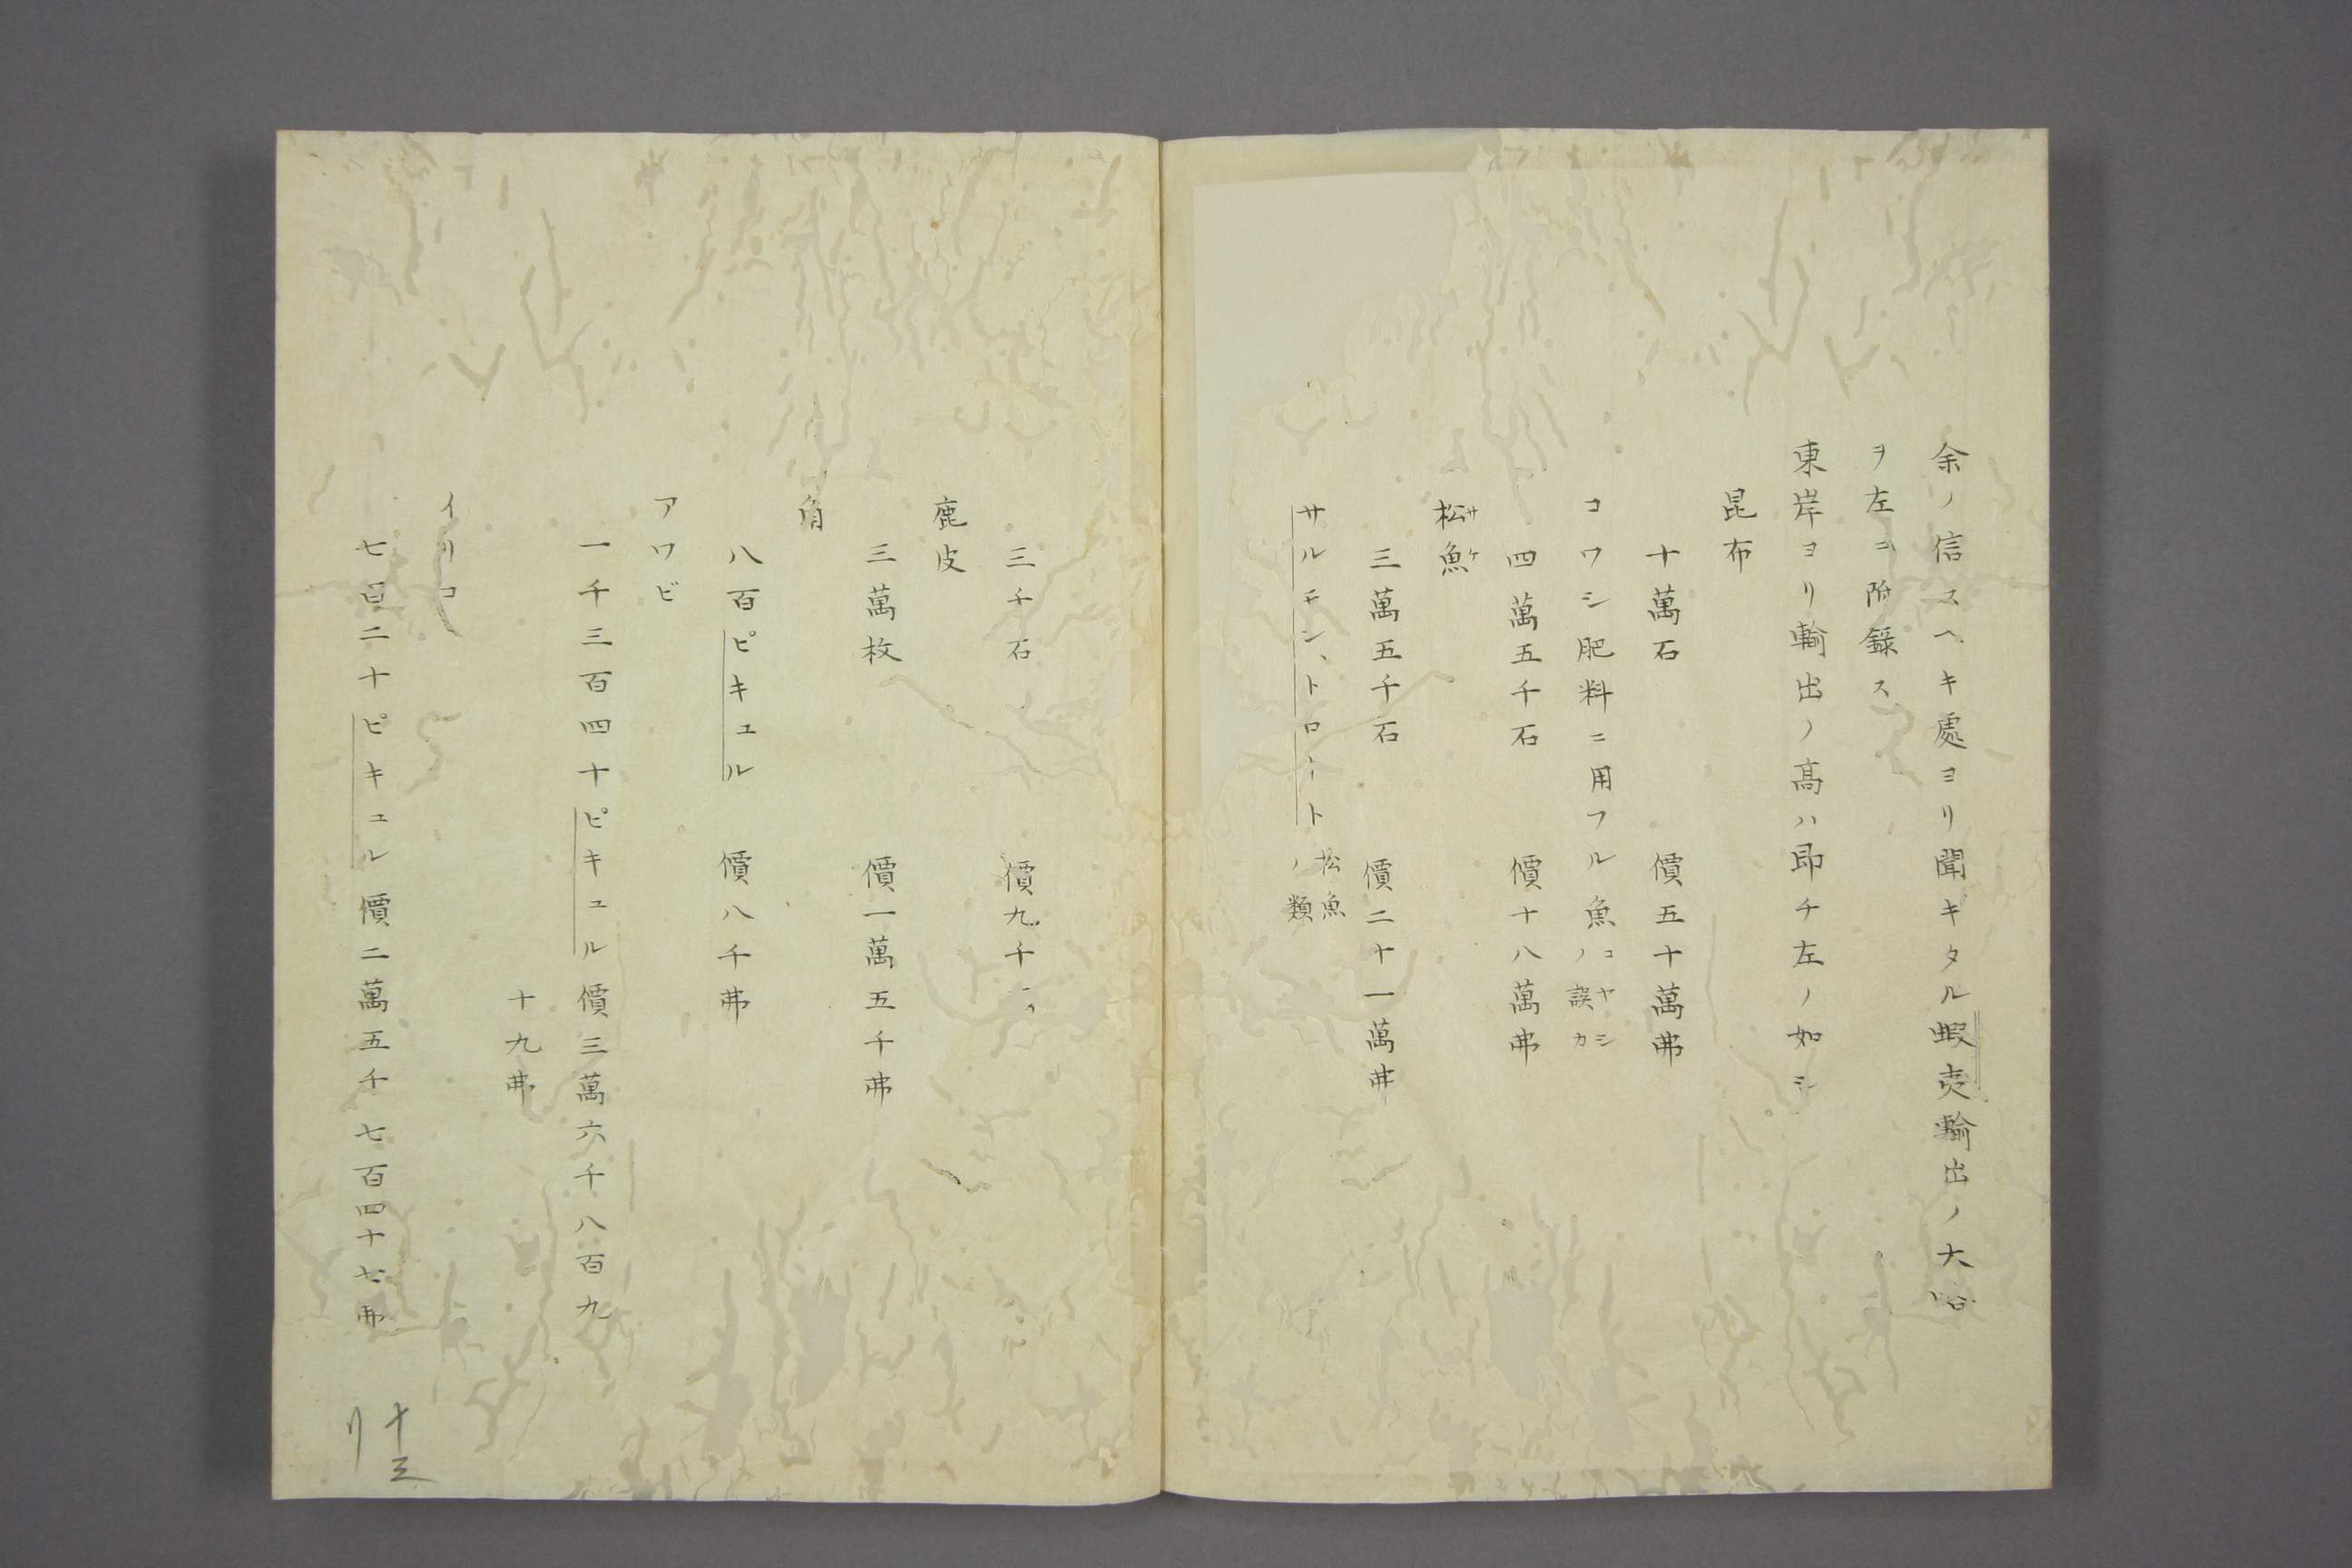 余ノ信スヘキ處ヨリ聞キタル蝦夷輸出ノ大畧
ヲ左ニ附録ス
東岸ヨリ輸出ノ高ハ即チ左ノ如シ
昆布
十萬石 價五十萬弗
コワシ肥料ニ用フル魚コヤシノ誤カ
四萬五千石 價十八萬弗
松魚サケ
三萬五千石 價二十一萬弗
サルモン、トロート松魚ノ類
三千石 價九千弗
鹿皮
三萬枚 價一萬五千弗
角
八百ピキュル 價八千弗
アワビ
一千三百四十ピキュル價三萬六千八百九
十九弗
イリコ
七百二十ピキュル價二萬五千七百四十七弗
十三
リ